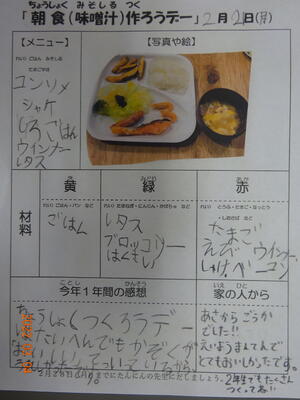 ちょうしょく みそしる つく
「朝食(味噌汁)作ろうデー」2月21日(月)
【メニュー】
【写真や絵】
れい)ごはん みそしる
たまごやき
コンソメ
シャケ
しろごはん
ウインナー
レタス
材料
黄 緑 赤
れい)ごはん・パン など
れい)たまねぎ・にんじん・かぼちゃ など
れい)とうふ・たまご・なっとう
・しおさば など
ごはん
レタス
ブロッコリー
たまご
えび ウインナー
しゃけ ベーコン
今年1年間の感想
家の人から
ちょうしょくつくろうデー
たいへんでもかぞくが
あさから ごうか
でした!!
えいようまんてんで
とてもおいしかったです。
2年生でもたくさん
つくってね!!
2月28日(月)までにたんにんの先生にだしましょう。